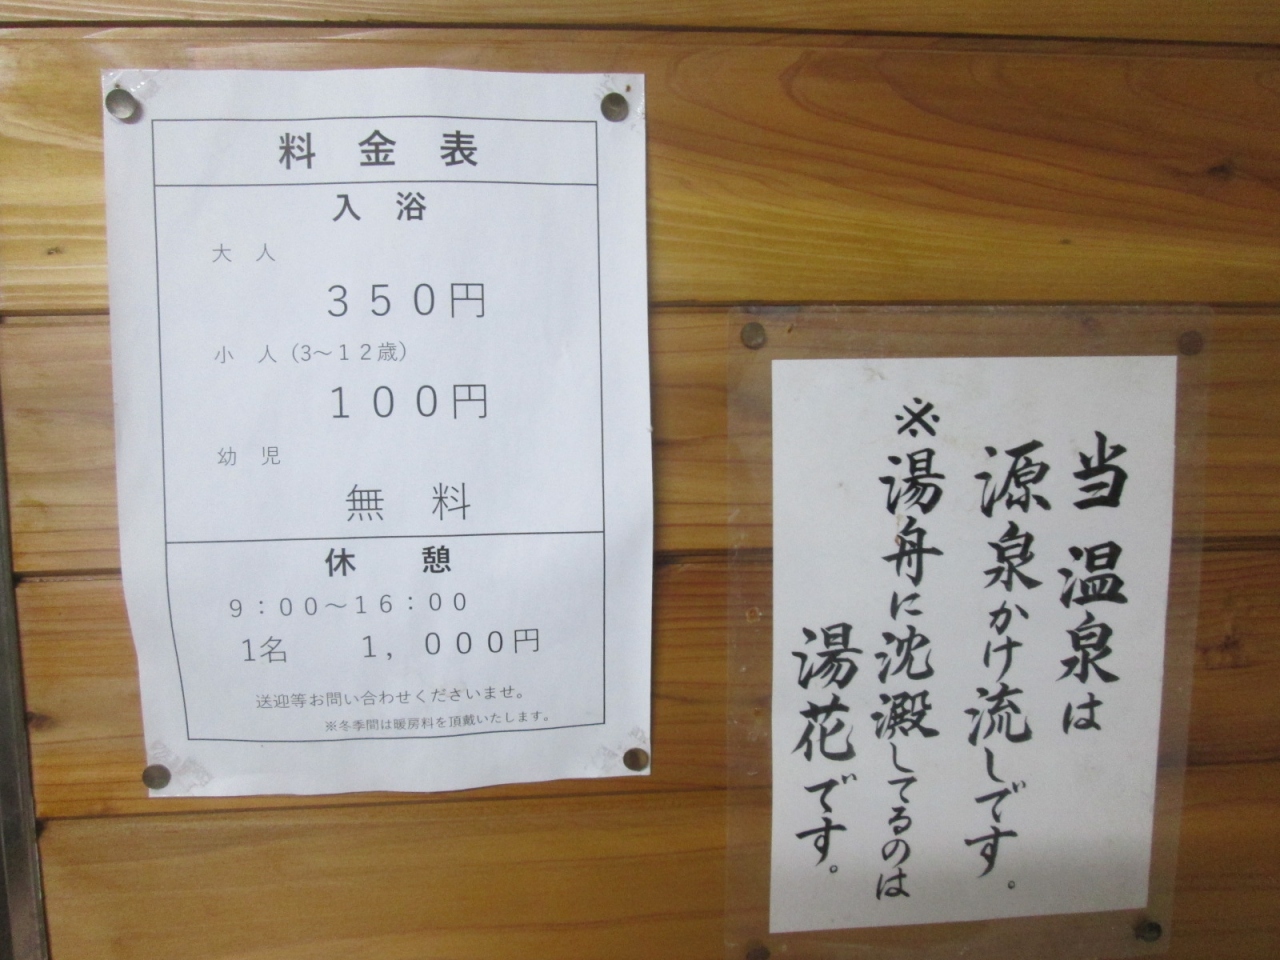 料 金 表
入 浴
大 人
３５０円
小 人（3～１２歳）
１００円
幼 児
無 料
休 憩
９：００～１６：００
1名 １，０００円
送迎等お問い合わせくださいませ。
※冬季間は暖房料を頂戴いたします。
当温泉は
源泉かけ流しです。
※湯舟に沈澱してるのは
湯花です。